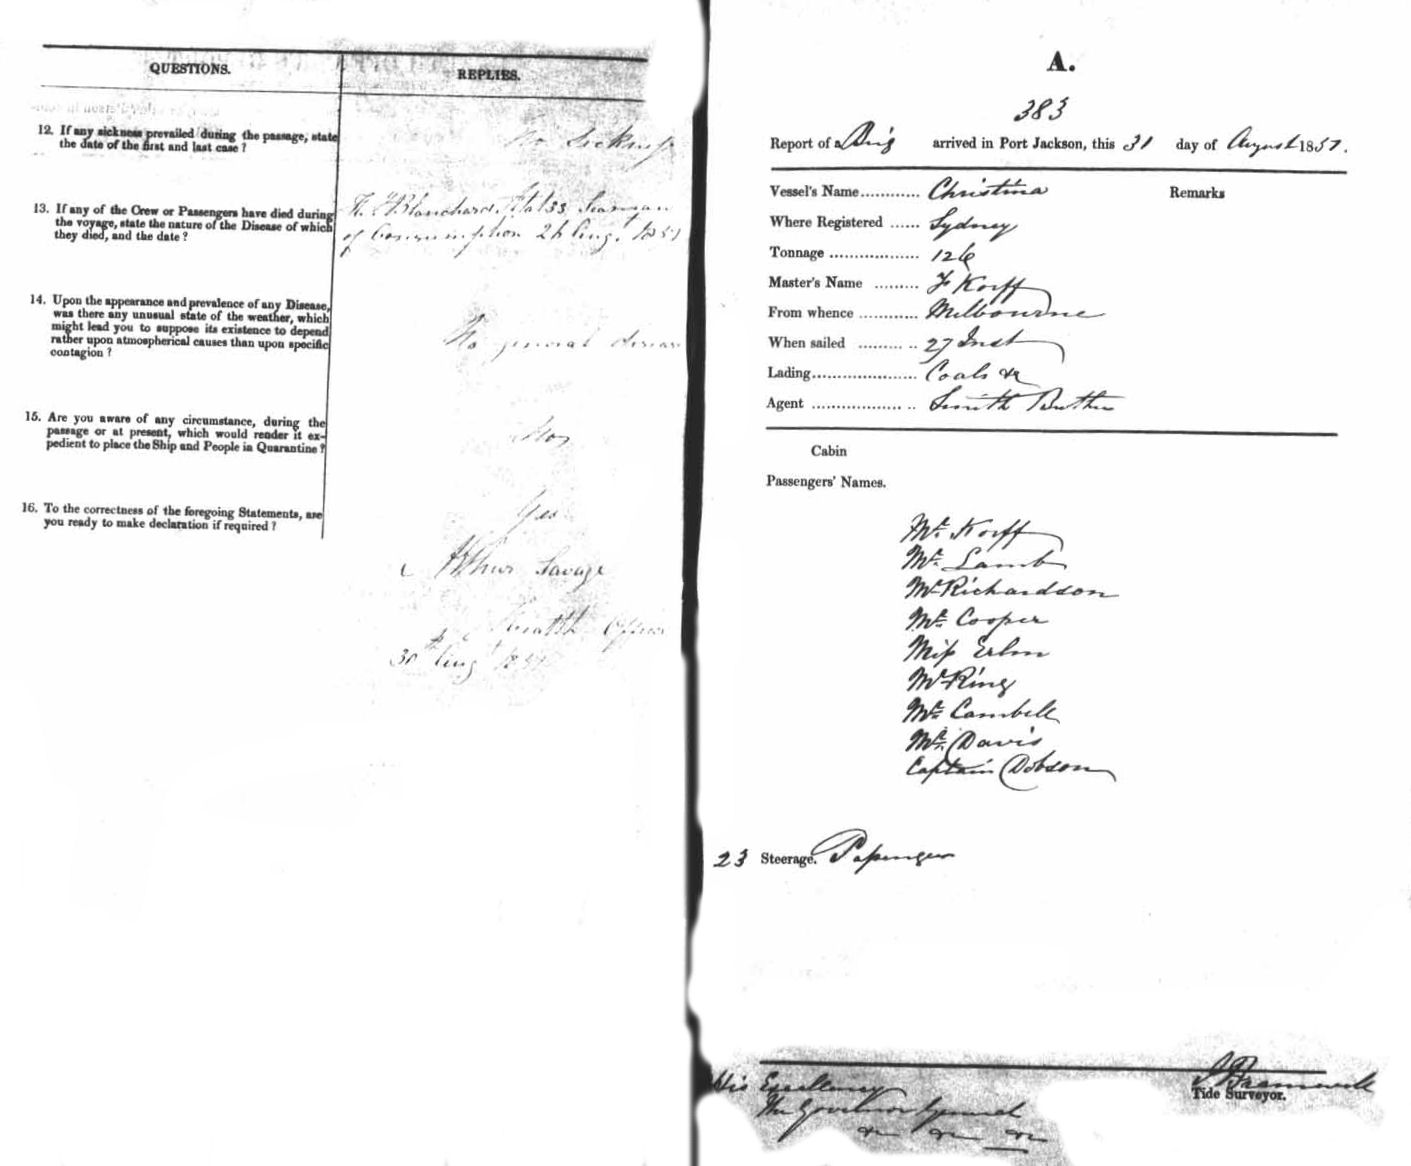 QUESTIONS.
REPLIES.
12. If any sickness prevailed during the passage, state
the date of the first and last case ?
No Sickness
13. If any of the Crew or Passengers have died during
the voyage, state the nature of the Disease of which
they died, and the date ?
Blanchard, 33 Seaman
of Consumption Augt. 1851
14. Upon the appearance and prevalence of any Disease,
was there any unusual state of the weather, which
might lead you to suppose its existence to depend
rather upon atmospherical causes than upon specific
contagion ?
No general disease
15. Are you aware of any circumstance, during the
passage or at present, which would render it ex-
pedient to place the Ship and People in Quarantine ?
16. To the correctness of the foregoing Statements, are
you ready to make declaration if required ?
Yes
Arthur Savage
Health Officer
Augt 1851
A.
383
Report of a Brig arrived in Port Jackson, this 31 day of August 1851.
Vessel's Name............ Christina
Remarks
Where Registered ...... Sydney
Tonnage .................. 126
Master's Name ......... F Korff
From whence ............ Melbourne
When sailed ......... .. 27 Inst
Lading..................... Coals &c
Agent .................. .. Smith Brothers
Cabin
Passengers' Names.
Mr. Korff
Mr. Lamb
Mr Richardson
Mr. Cooper
Miss
Mr King
Mr. Cambell
Mr. Davis
Captain Dobson
23 Steerage. Passengers
His Excellency
The Governor General
&c &c &c
J Bramwell
Tide Surveyor.